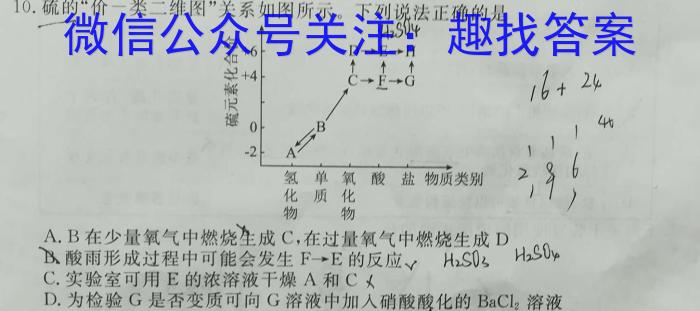 10. 硫的“价一类二维图”关系如图所示。下列说法正确的是
微信公众号关注：趣找答案
硫元素化合
+6
+4
C→F→G
0
B
-2
A
氢化物 单质 氧化物 酸 盐 物质类别
16+ 24
A. B在少量氧气中燃烧生成C,在过量氧气中燃烧生成D
B. 酸雨形成过程中可能会发生F→E的反应 H₂SO₃ H₂SO₄
C. 实验室可用E的浓溶液干燥A和C
D. 为检验G是否变质可向G溶液中加入硝酸酸化的BaCl₂溶液